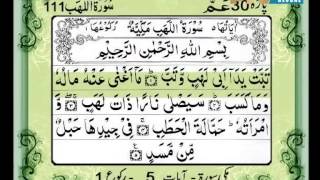 سُوْرَةُ اللَّهَب 111
پارہ 30 عَمَّ
سُوْرَةُ اللَّهَبِ مَكِّيَّةٌ
بِسْمِ اللهِ الرَّحْمٰنِ الرَّحِيْمِ
تَبَّتْ يَدَآ اَبِيْ لَهَبٍ وَّتَبَّ ۞ مَآ اَغْنٰى عَنْهُ مَالُهٗ
وَمَا كَسَبَ ۞ سَيَصْلٰى نَارًا ذَاتَ لَهَبٍ ۞ وَّ
امْرَاَتُهٗ ؕ حَمَّالَةَ الْحَطَبِ ۞ فِيْ جِيْدِهَا حَبْلٌ
مِّنْ مَّسَدٍ ۞
مکی سورۃ - آیات 5 - رکوع 1